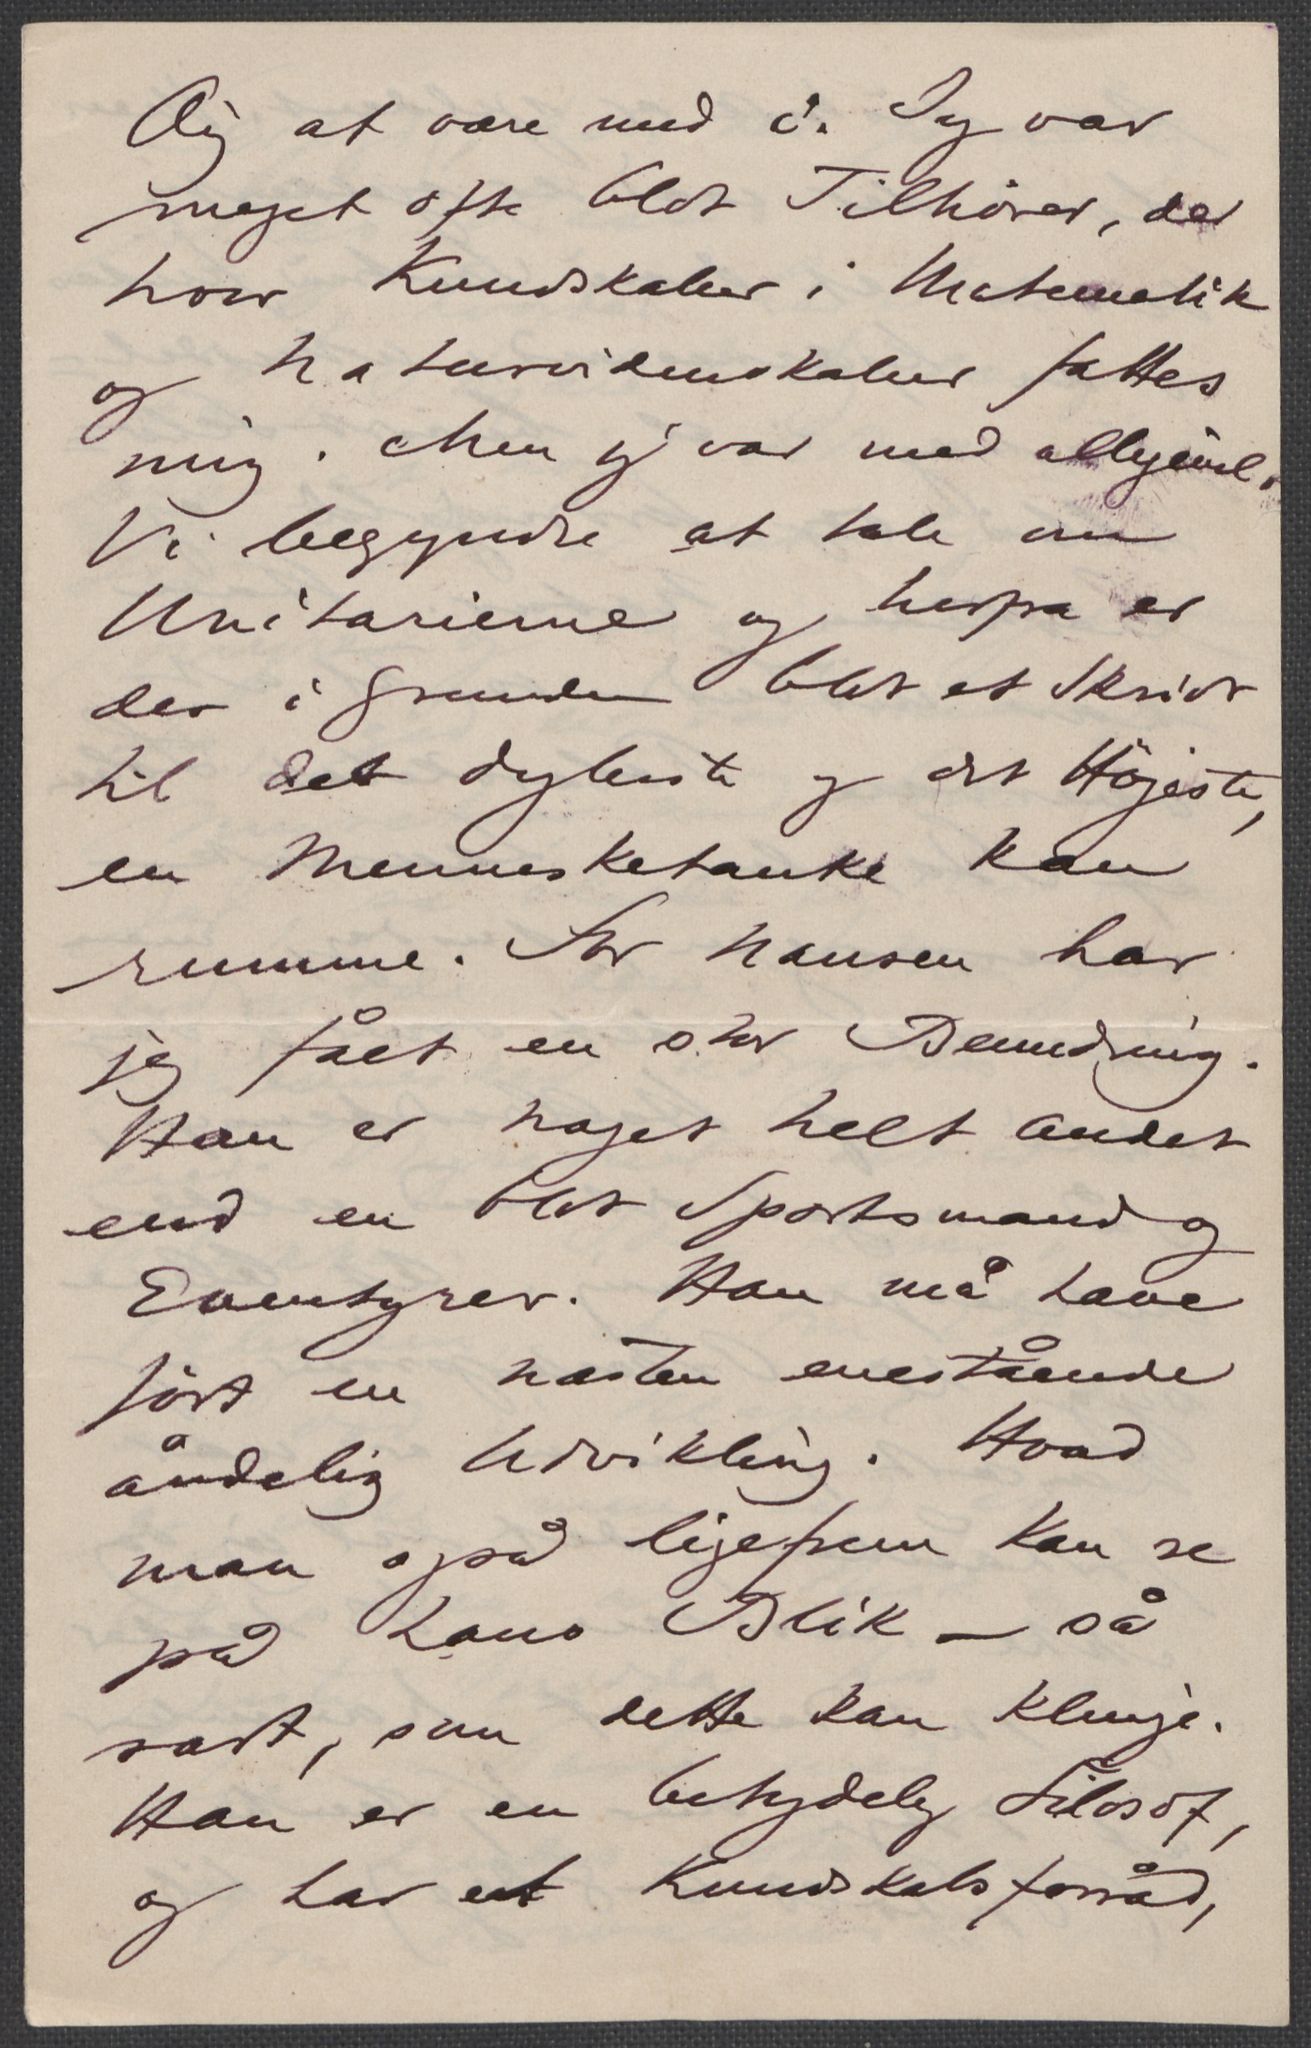 Dig at være med i. Jeg var
meget ofte blot Tilhører, der
hvor Kundskaber i Matematik
og Naturvidenskaber fattes
mig. Men jeg var med alligevel.
Vi begyndte at tale om
Unitarierne og herfra er
der i Grunden blot et Skridt
til det dybeste og det Højeste,
en Mennesketanke kan
rumme. For Nansen har
jeg fået en stor Beundring.
Han er noget helt andet
end en blot Sportsmand og
Eventyrer. Han må have
ført en næsten enestående
åndelig Udvikling. Hvad
man også ligefrem kan se
på hans Blik – så
sært, som dette kan klinge.
Han er en betydelig Filosof,
og har et Kundskabsforråd,